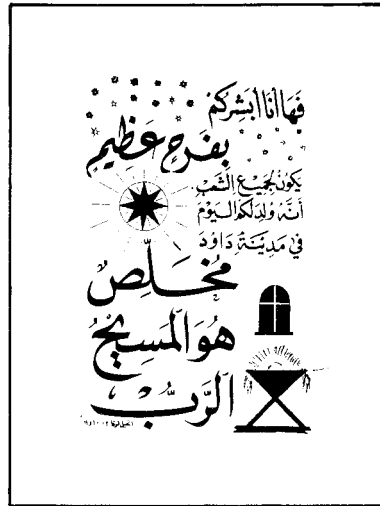 فَهَا أَنَا أُبَشِّرُكُمْ
بِفَرَحٍ عَظِيمٍ
يَكُونُ لِجَمِيعِ الشَّعْبِ.
أَنَّهُ وُلِدَ لَكُمُ الْيَوْمَ
فِي مَدِينَةِ دَاوُدَ
مُخَلِّصٌ
هُوَ الْمَسِيحُ
الرَّبُّ